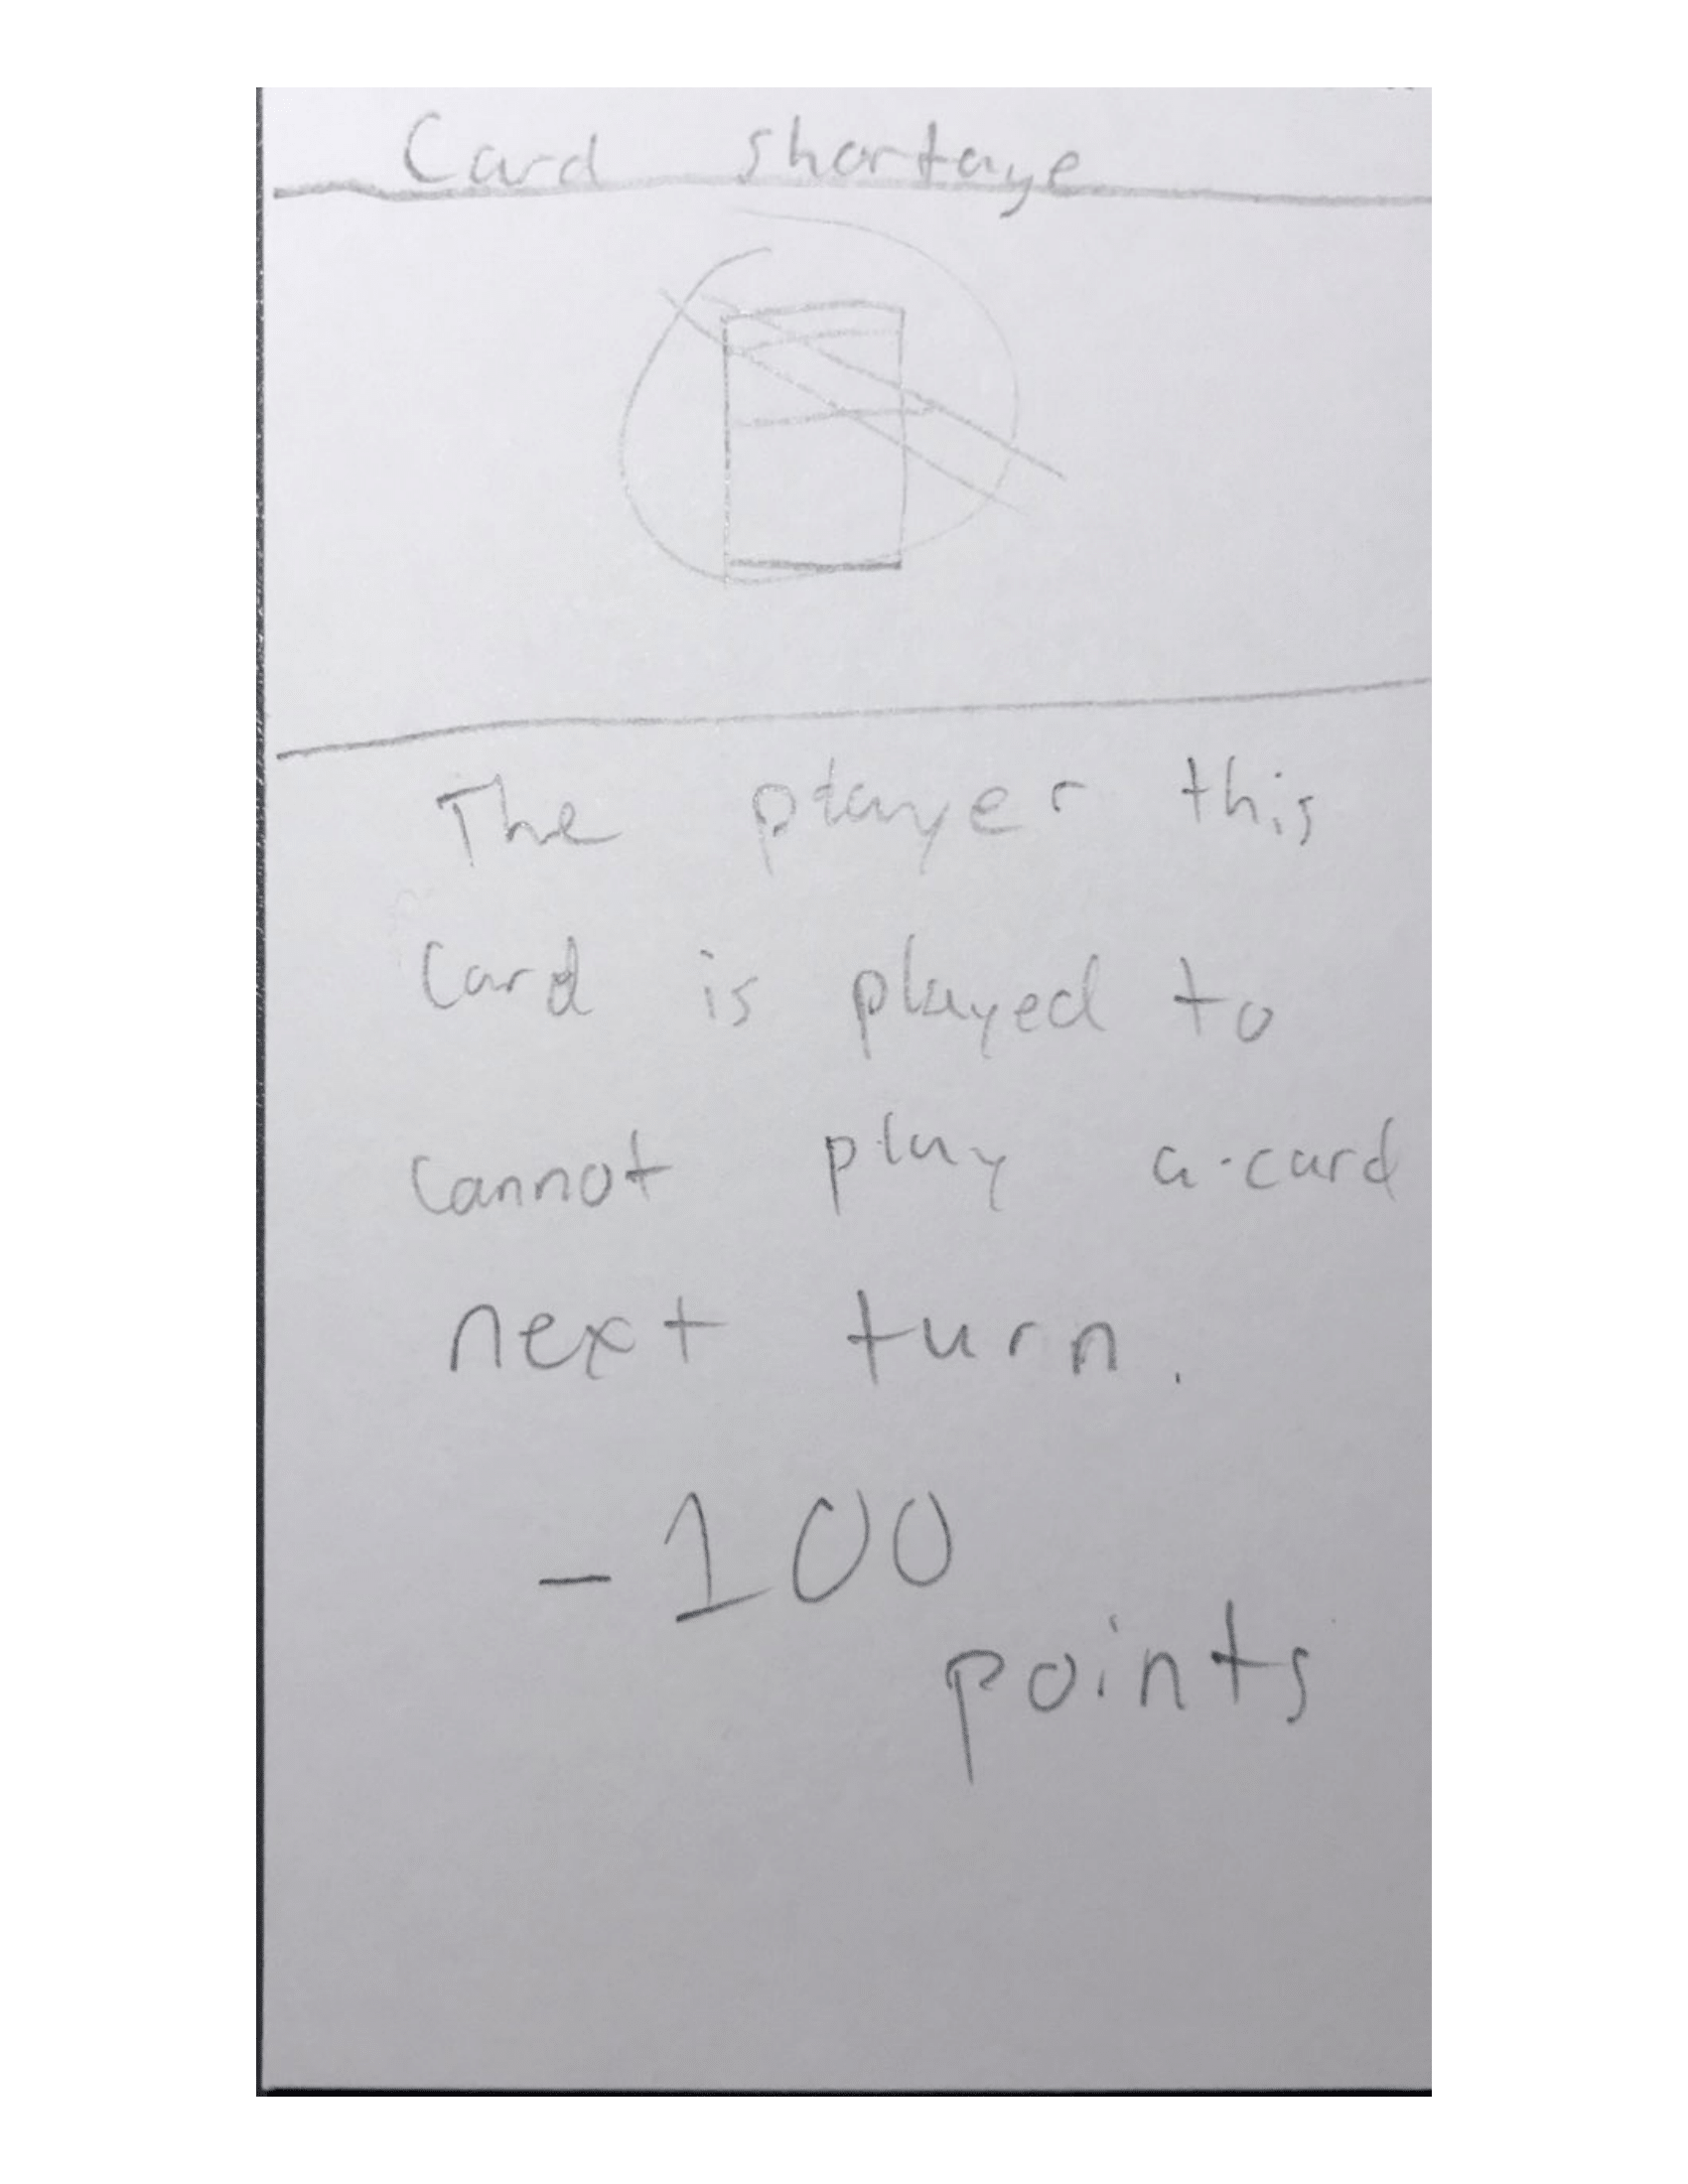 Card shortage
The player this
Card is played to
cannot play a card
next turn.
-100
points